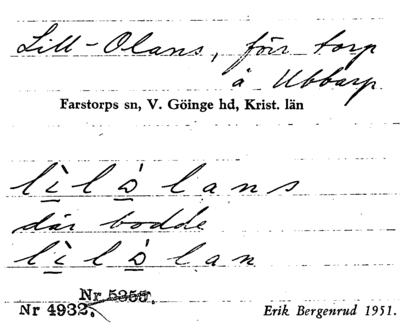 Lill-Olans, förr torp
å Ubbarp
Farstorps sn, V. Göinge hd, Krist. län
lìlòlans
där bodde
lìlòlan
Nr 5355.
Nr 4932.
Erik Bergenrud 1951.